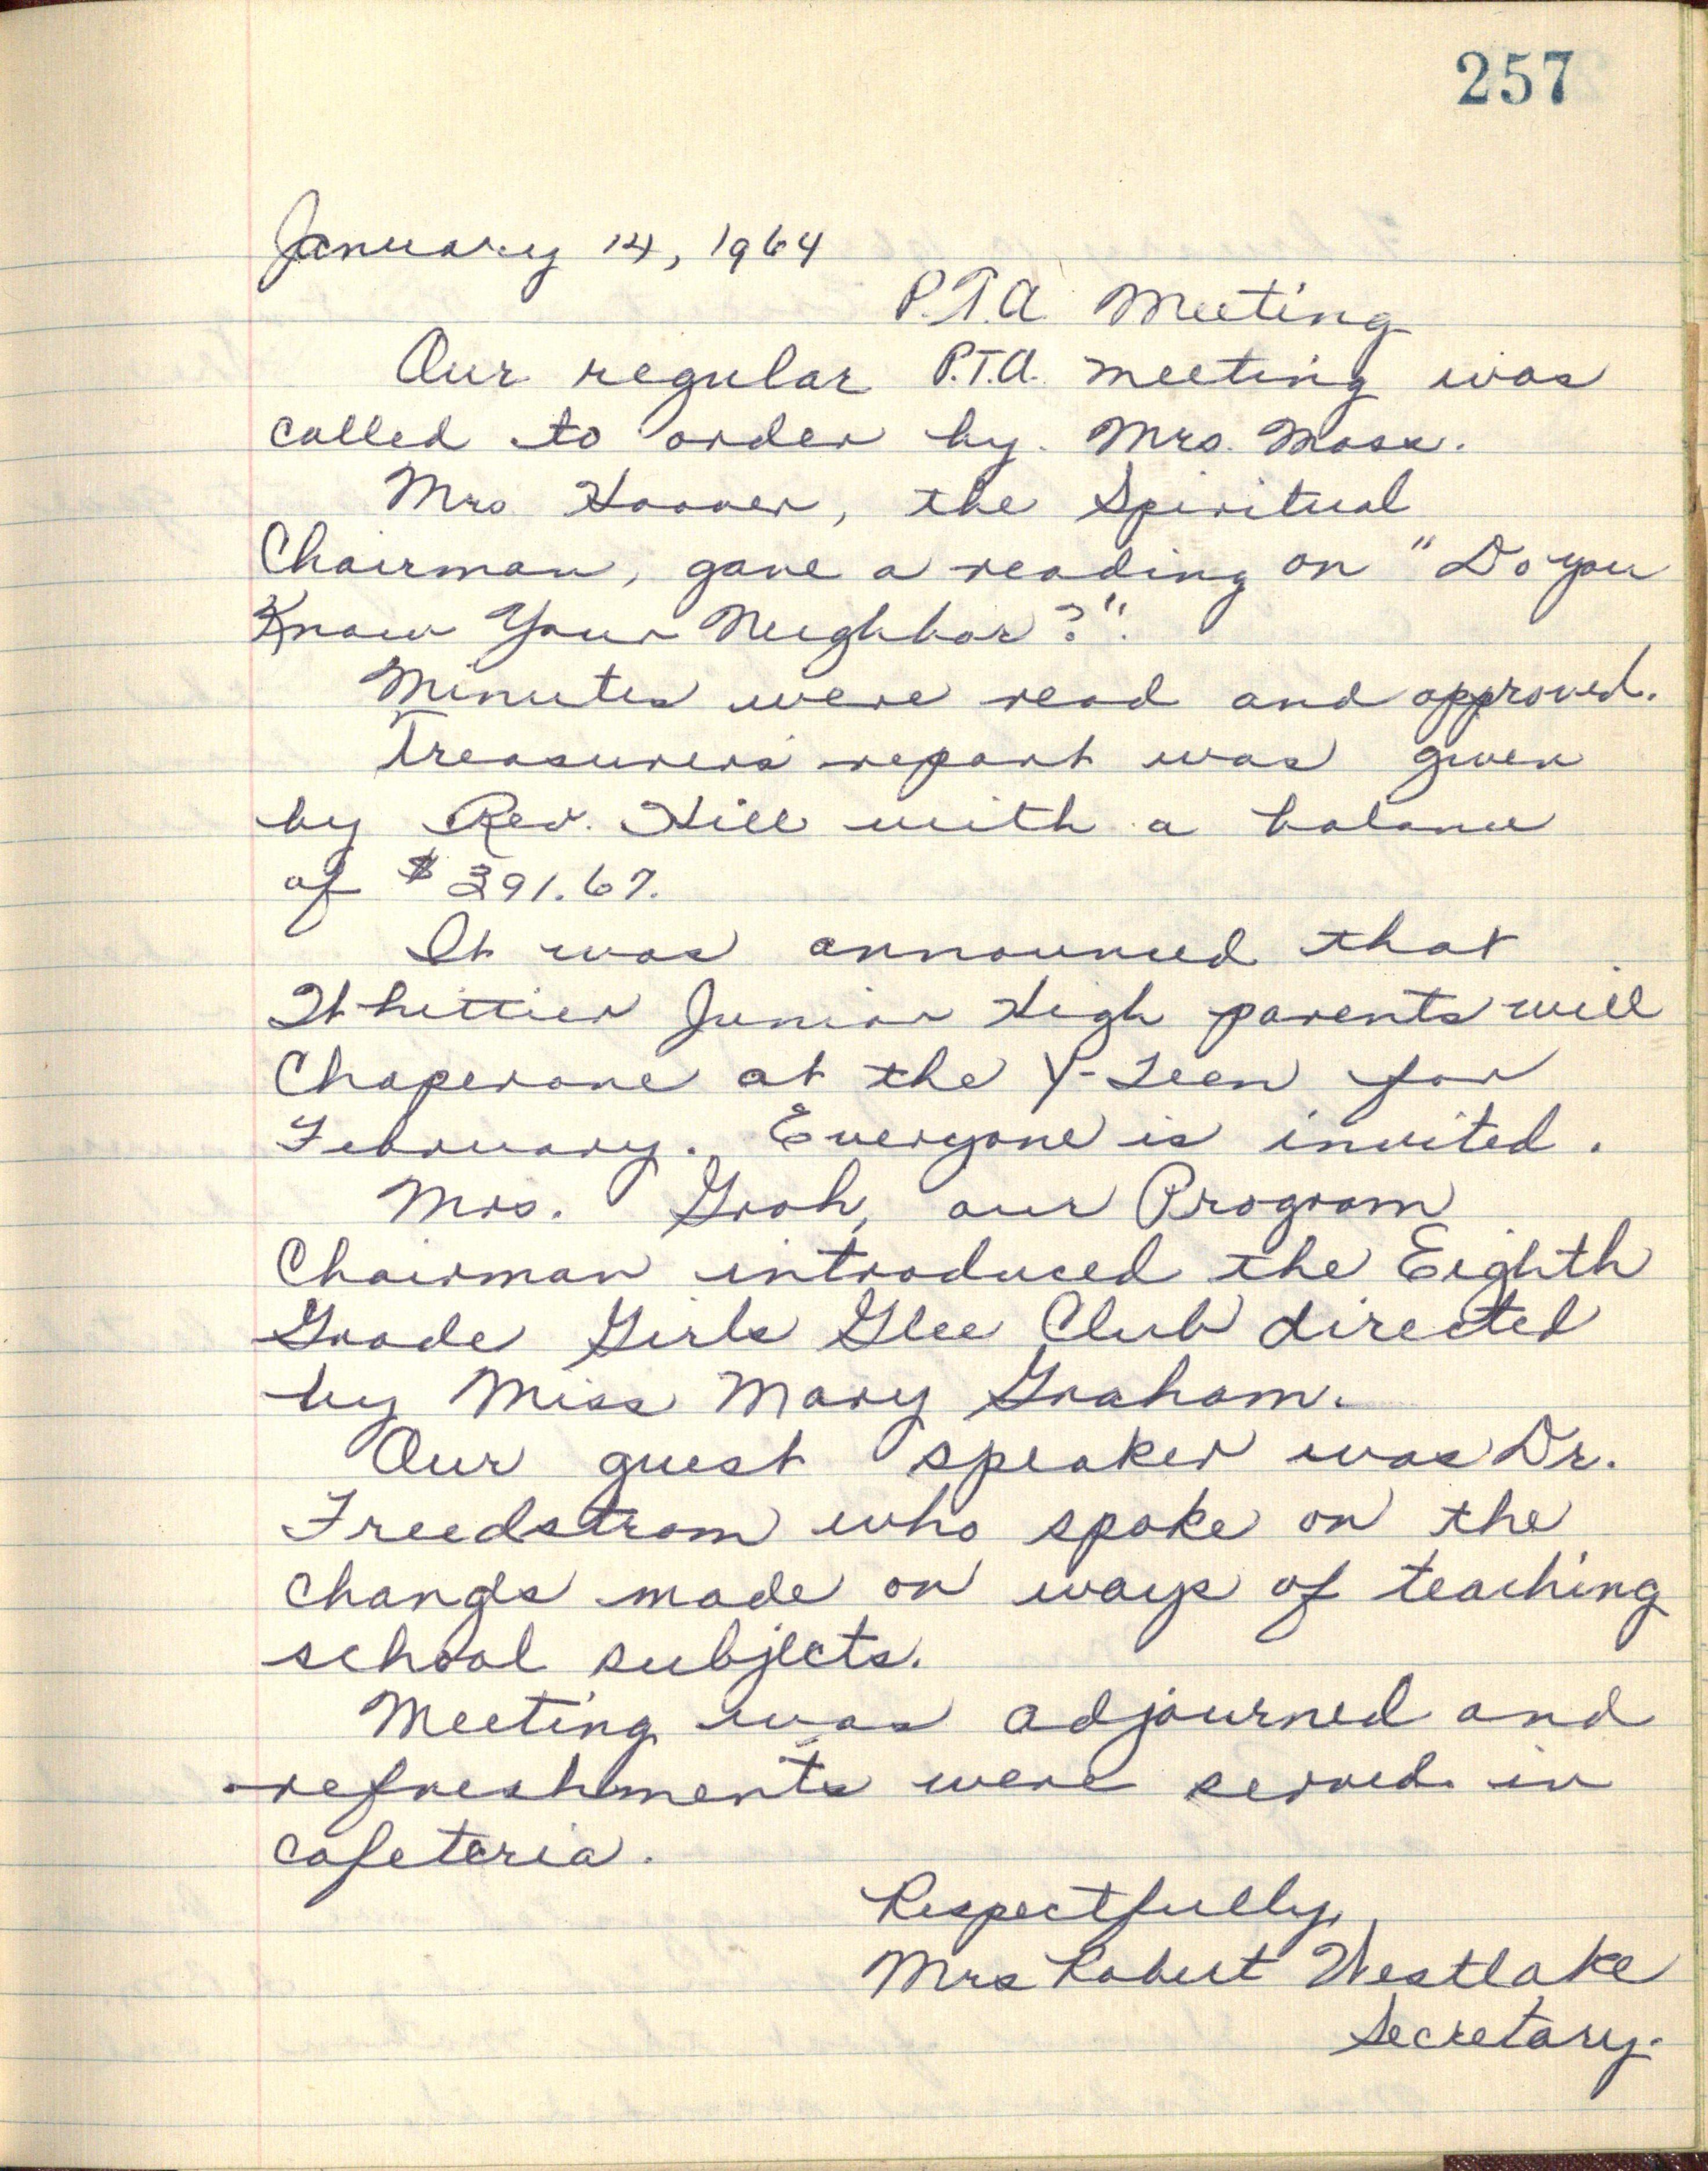 257
January 14, 1964
P.T.A. Meeting
Our regular P.T.A. meeting was
called to order by Mrs. Moss.
Mrs Hoover, the Spiritual
Chairman, gave a reading on "Do you
Know Your Neighbor?".
Minutes were read and approved.
Treasurers report was given
by Rev. Hill with a balance
of $391.67.
It was announced that
Whittier Junior High parents will
Chaperone at the Y-Teen for
February. Everyone is invited.
Mrs. Groh, our Program
Chairman introduced the Eighth
Grade Girls Glee Club directed
by Miss Mary Graham.
Our guest speaker was Dr.
Freedstrom who spoke on the
changes made on ways of teaching
school subjects.
Meeting was adjourned and
refreshments were served in
cafeteria.
Respectfully,
Mrs Robert Westlake
Secretary.